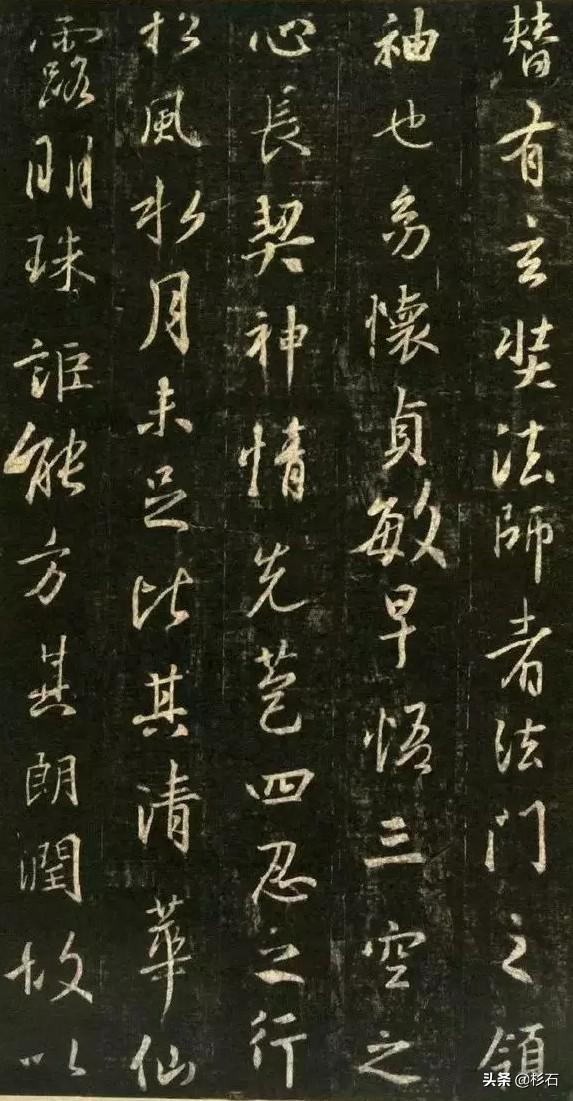 替有玄奘法師者法門之領
袖也幼懷貞敏早悟三空之
心長契神情先苞四忍之行
松風水月未足比其清華仙
露明珠詎能方其朗潤故以
头条@杉石